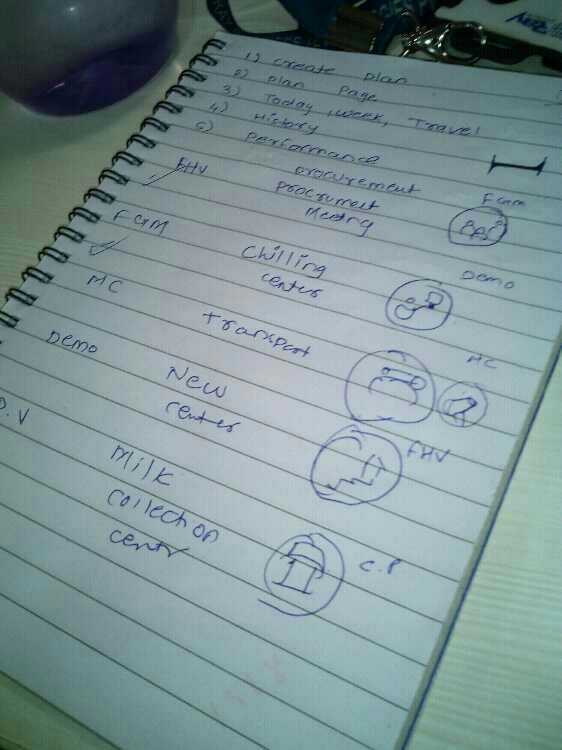 1) create plan
2) plan page
3) Today, week, Travel
4) History
5) performance
FHV procurement FGM
procrumest
Meeting
FGM chilling Demo
center
MC Transport MC
Demo New FHV
center
D.V Milk
collection C.P
centr